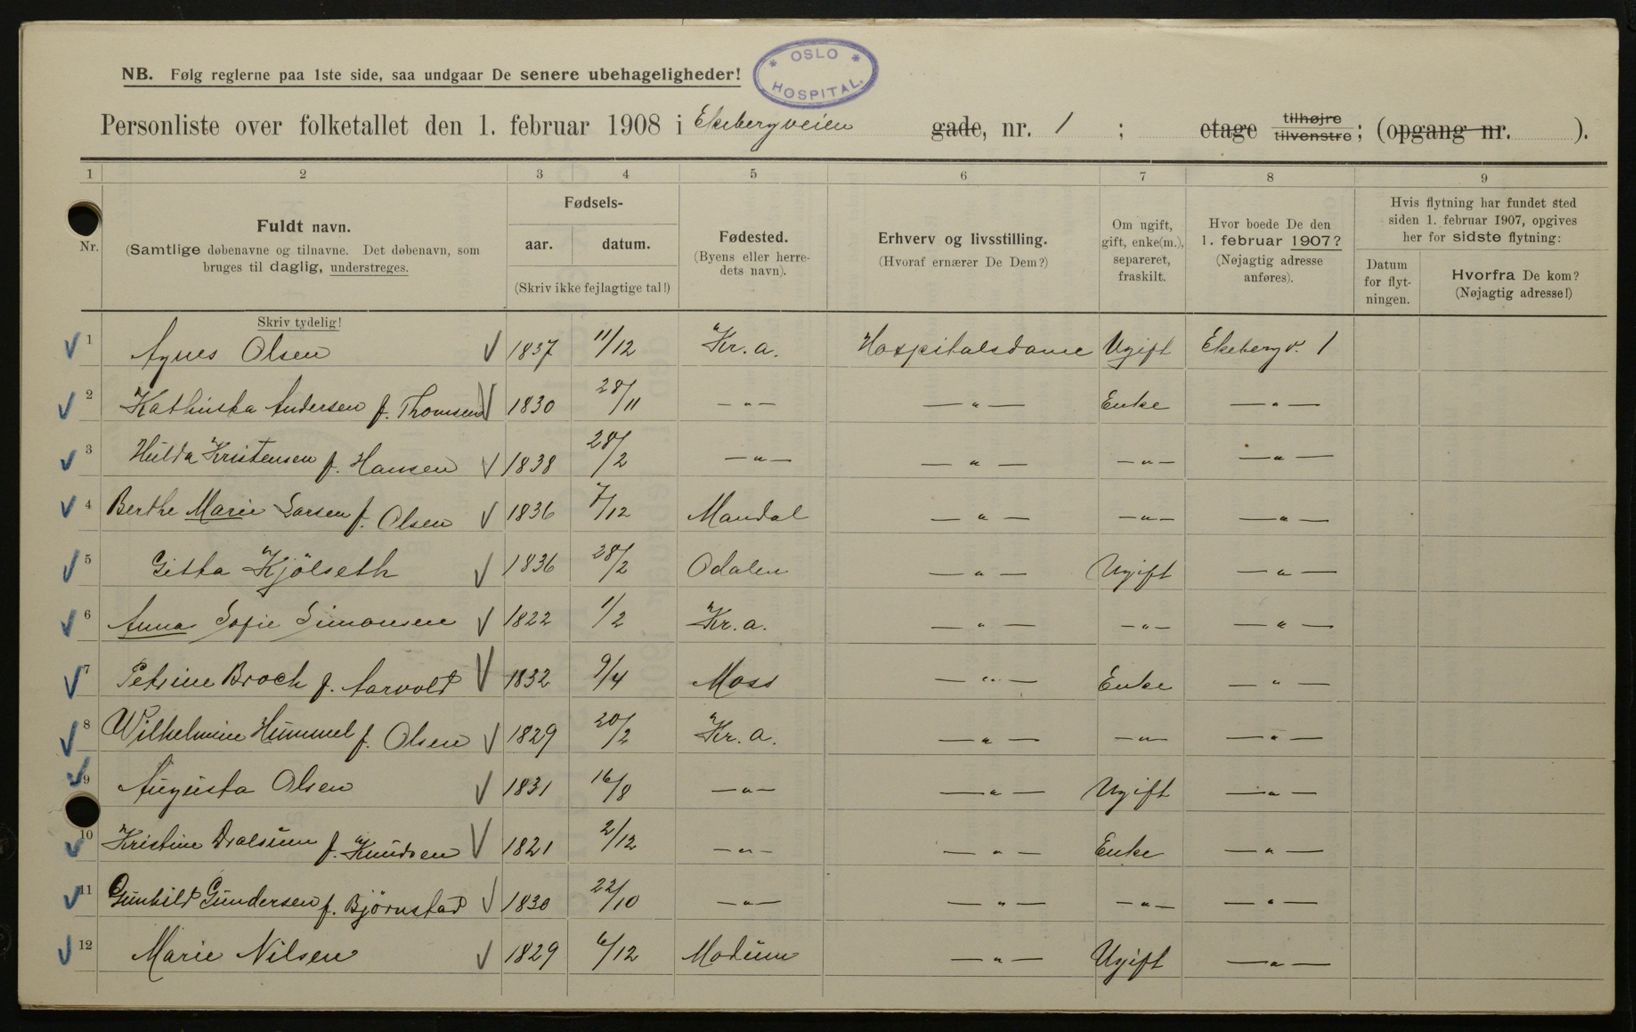 NB. Følg reglerne paa 1ste side, saa undgaar De senere ubehageligheder!
* OSLO * HOSPITAL.
Personliste over folketallet den 1. februar 1908 i Ekebergveien gade, nr. 1 ; etage tilhøjre tilvenstre; (opgang nr. ).
1 2 3 4 5 6 7 8 9
Nr.
Fuldt navn.
(Samtlige døbenavne og tilnavne. Det døbenavn, som
bruges til daglig, understreges.
Skriv tydelig!
Fødsels-
aar. datum.
(Skriv ikke fejlagtige tal!)
Fødested.
(Byens eller herre-
dets navn).
Erhverv og livsstilling.
(Hvoraf ernærer De Dem?)
Om ugift,
gift, enke(m.),
separeret,
fraskilt.
Hvor boede De den
1. februar 1907?
(Nøjagtig adresse
anføres).
Hvis flytning har fundet sted
siden 1. februar 1907, opgives
her for sidste flytning:
Datum
for flyt-
ningen.
Hvorfra De kom?
(Nøjagtig adresse!)
1 Agnes Olsen 1837 11/12 Kr.a. Hospitalsdame Ugift Ekebergv. 1
2 Kathinka Andersen f. Thomsen 1830 28/11 — " — — " — Enke — " —
3 Hulda Kristensen f. Hansen 1838 28/2 — " — — " — — " — — " —
4 Berthe Marie Larsen f. Olsen 1836 7/12 Mandal — " — — " — — " —
5 Gitta Kjölseth 1836 28/2 Odalen — " — Ugift — " —
6 Anna Sofie Simonsen 1822 1/2 Kr.a. — " — — " — — " —
7 Petrine Broch f. Aarvold 1832 9/4 Moss — " — Enke — " —
8 Wilhelmine Hummel f. Olsen 1829 20/2 Kr.a. — " — — " — — " —
9 Augusta Olsen 1831 16/8 — " — — " — Ugift — " —
10 Kristine Dralsum f. Knudsen 1821 2/12 — " — — " — Enke — " —
11 Gunhild Gundersen f. Bjørnstad 1830 22/10 — " — — " — — " — — " —
12 Marie Nilsen 1829 6/12 Modum — " — Ugift — " —